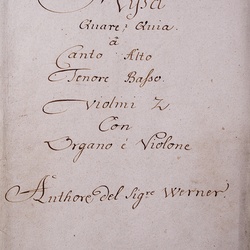 Missa
Quare, Quia.
â
Canto Alto
Tenore Basso.
Violini 2
Con
Organo è Violone
Authore del Sigre Werner.